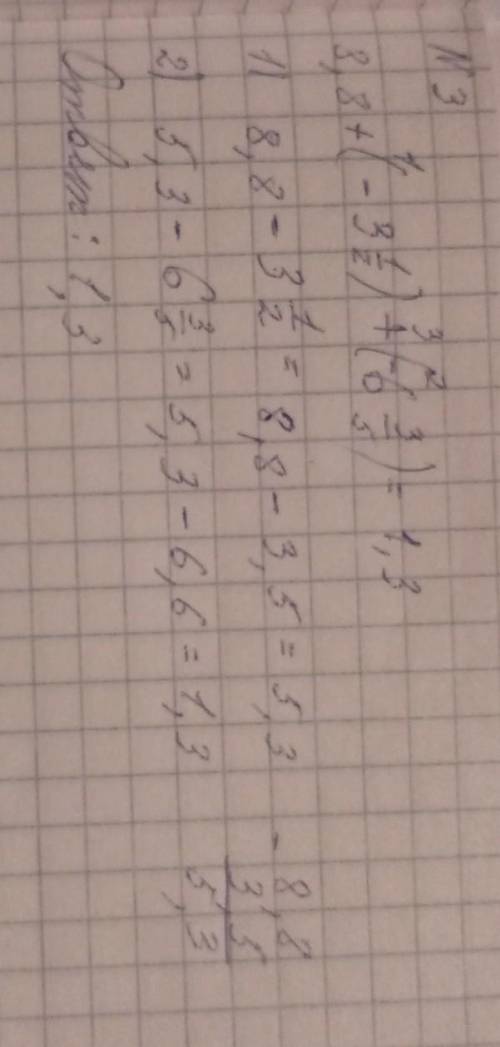 №3
8,8 + (-3 1/2) + (-6 3/5) = 1,3
1) 8,8 - 3 1/2 = 8,8 - 3,5 = 5,3
2) 5,3 - 6 3/5 = 5,3 - 6,6 = 1,3
Ответ: 1,3
- 8,8
3,5
5,3